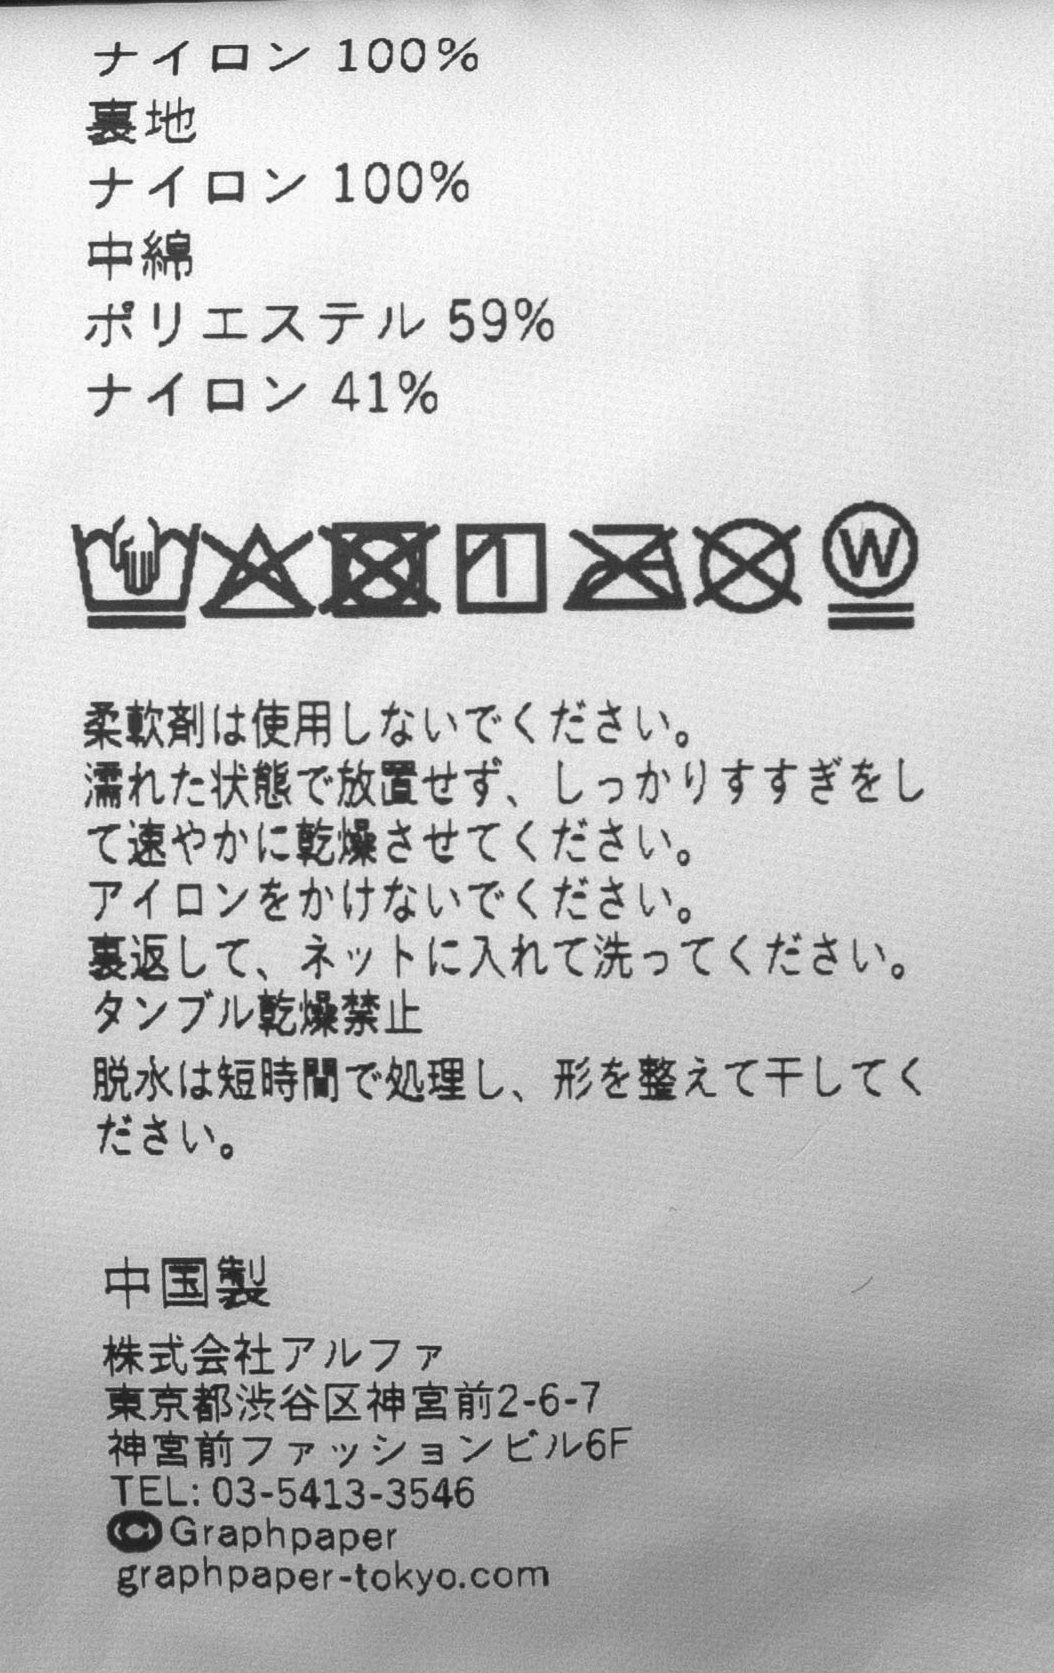 ナイロン 100%
裏地
ナイロン 100%
中綿
ポリエステル 59%
ナイロン 41%
W
柔軟剤は使用しないでください。
濡れた状態で放置せず、しっかりすすぎをし
て速やかに乾燥させてください。
アイロンをかけないでください。
裏返して、ネットに入れて洗ってください。
タンブル乾燥禁止
脱水は短時間で処理し、形を整えて干してく
ださい。
中国製
株式会社アルファ
東京都渋谷区神宮前2-6-7
神宮前ファッションビル6F
TEL: 03-5413-3546
©Graphpaper
graphpaper-tokyo.com